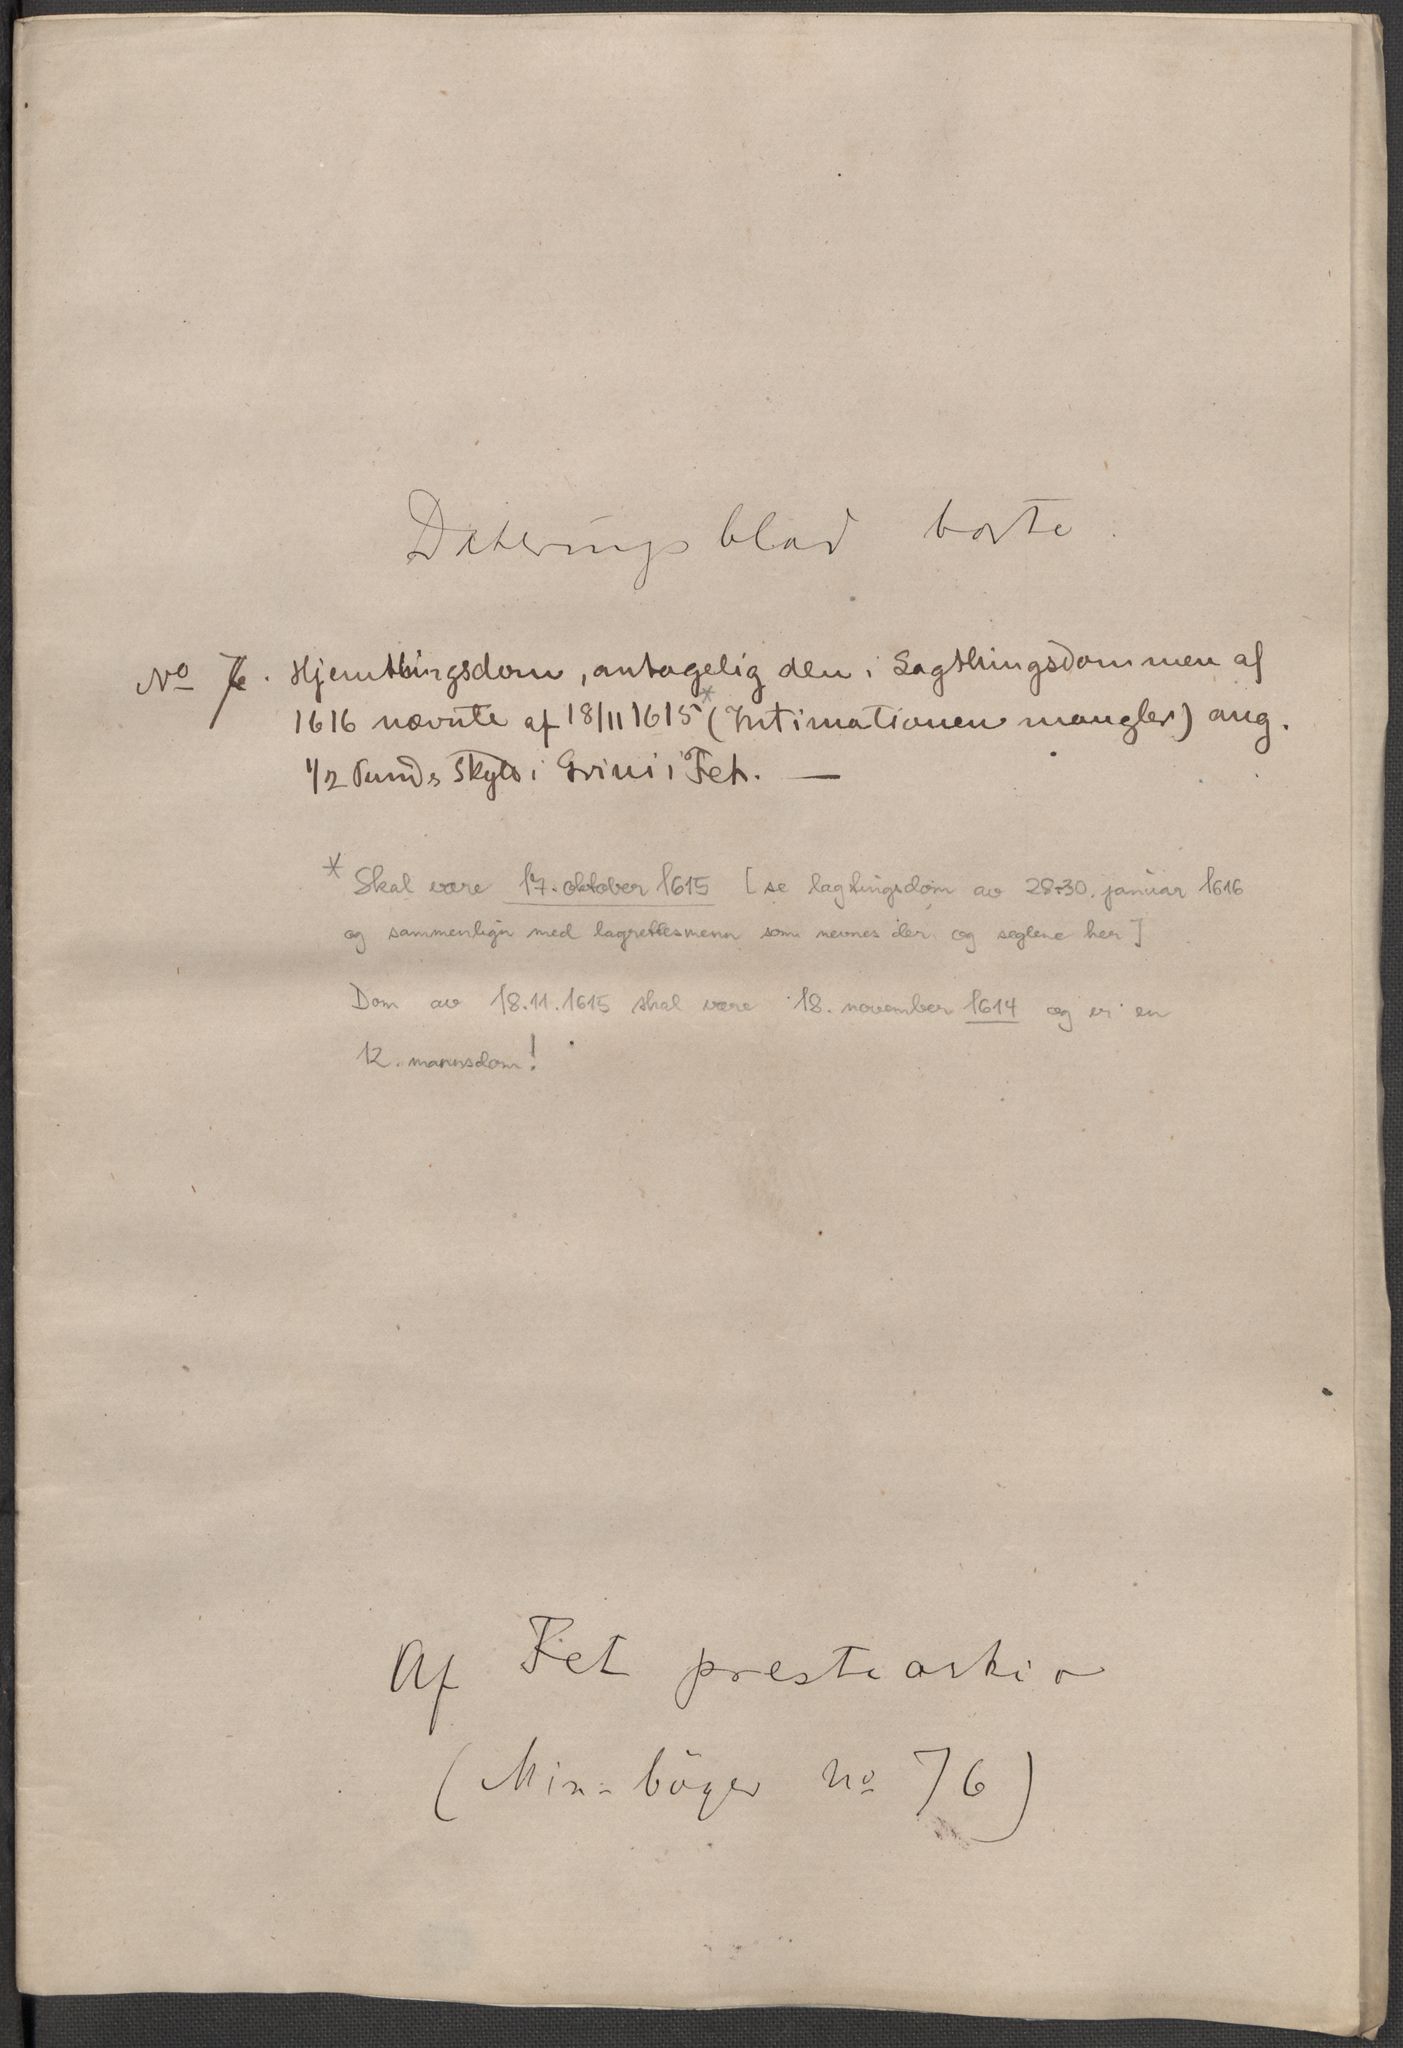 Dateringsblad borte.
No 7. Hjemthingsdom, antagelig den i Lagthingsdommen af
1616 nævnte af 18/11 1615* (Intimationen mangler) ang.
1/2 Punds Skyld i Grini i Fet. —
* Skal være 17. oktober 1615 [se lagtingsdom av 28-30. januar 1616
og sammenlign med lagrettesmenn som nevnes der og seglene her]
Dom av 18.11.1615 skal være 18. november 1614 og er en
12. mannsdom!
Af Fet prestearkiv
(Min.bøger no 76)